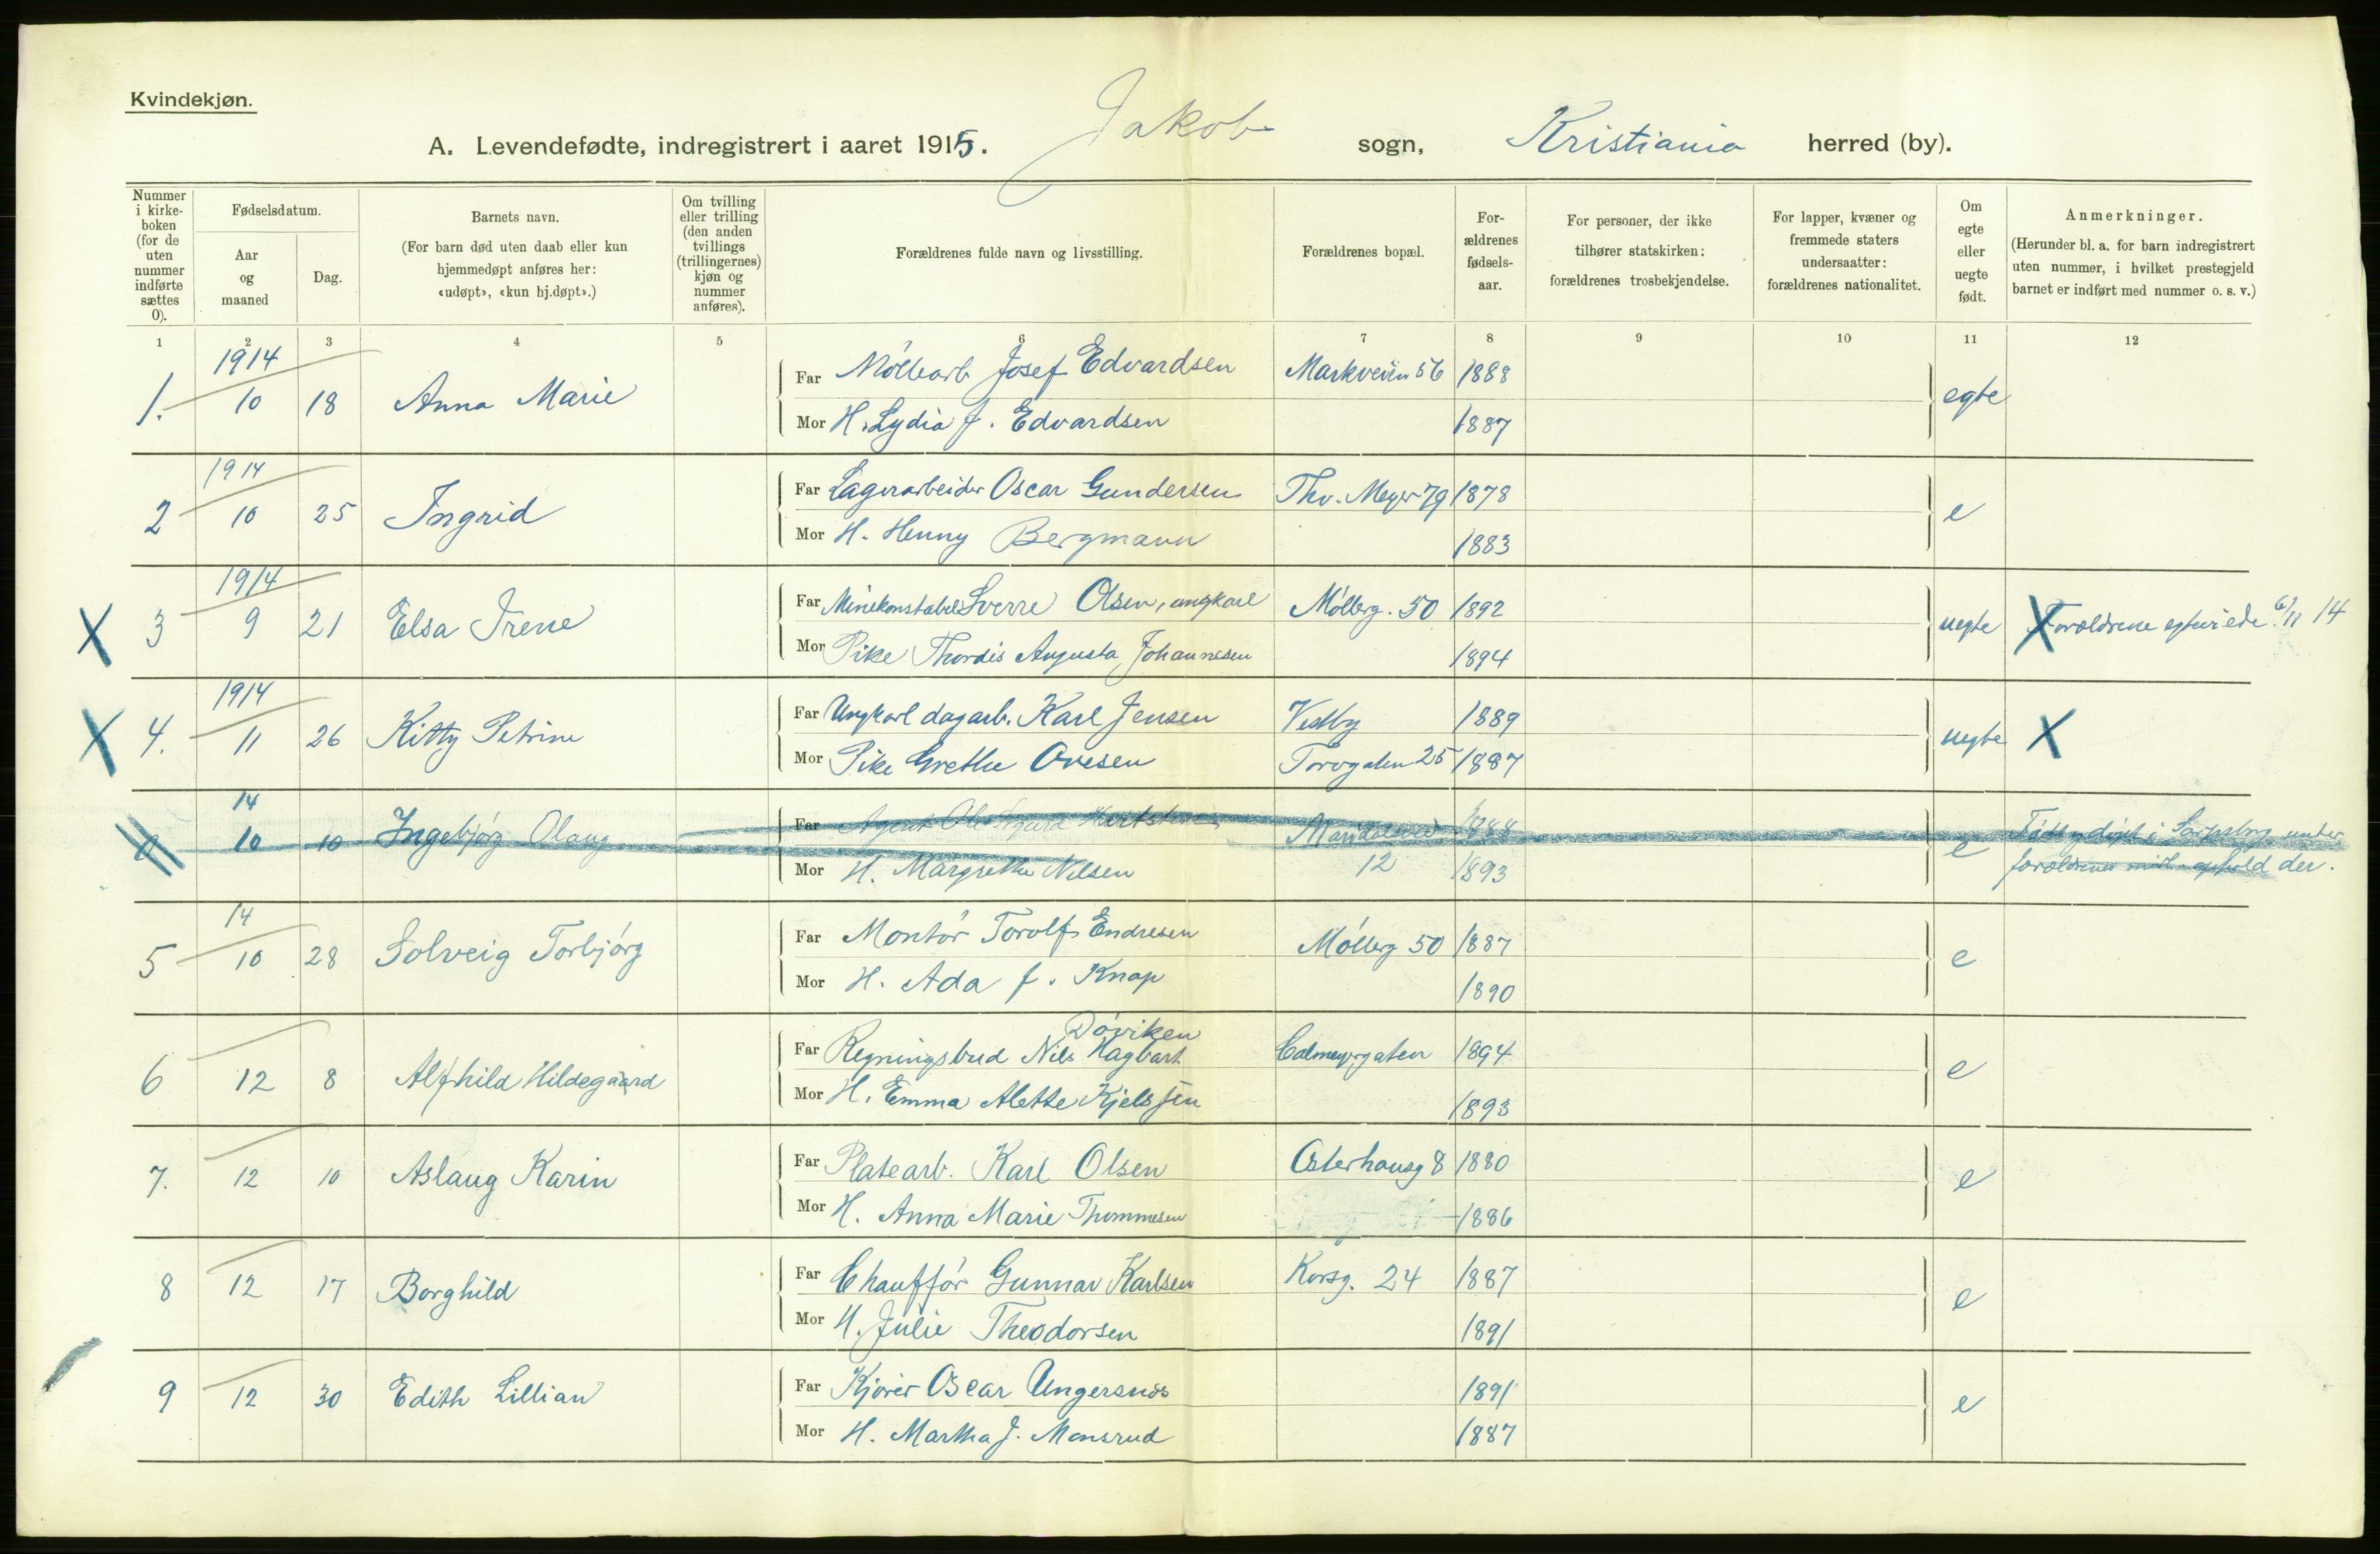 Kvindekjøn.
A. Levendefødte, indregistrert i aaret 1915. Jakob sogn, Kristiania herred (by).
Nummer i kirke-boken (for de uten nummer indførte sættes 0).
Fødselsdatum.
Aar og maaned
Dag.
Barnets navn.
(For barn død uten daab eller kun hjemmedøpt anføres her: «udøpt», «kun hj.døpt».)
Om tvilling eller trilling (den anden tvillings (trillingernes) kjøn og nummer anføres).
Forældrenes fulde navn og livsstilling.
Forældrenes bopæl.
For-ældrenes fødsels-aar.
For personer, der ikke tilhører statskirken: forældrenes trosbekjendelse.
For lapper, kvæner og fremmede staters undersaatter: forældrenes nationalitet.
Om egte eller uegte født.
Anmerkninger.
(Herunder bl. a. for barn indregistrert uten nummer, i hvilket prestegjeld barnet er indført med nummer o. s. v.)
1 2 3 4 5 6 7 8 9 10 11 12
1914
1. 10 18 Anna Marie Far Möllearb Josef Edvardsen Markveien 56 1888 egte
Mor H. Lydia J. Edvardsen 1887
1914
2 10 25 Ingrid Far Lagerarbeider Oscar Gundersen Thv. Meyer 79 1878 e
Mor H. Henny Bergmann 1883
1914
X 3 9 21 Elsa Irene Far Minekonstabel Sverre Olsen, ungkarl Möllerg. 50 1892 uegte X Forældrene egteviede 6/11 14
Mor Pike Thordis Augusta Johannesen 1894
1914
X 4. 11 26 Kitty Petrine Far Ungkarl dagarb. Karl Jensen Vestby 1889 uegte X
Mor Pike Grethe Ovesen Torvgaten 25 1887
14
0 10 10 Ingebjørg Olaug Far Agent Ole 1888 e Född og döpt i Sarpsborg under
Mor H. Margrethe Nilsen 12 1893 forældrenes midl. ophold der.
14
5 10 28 Solveig Torbjörg Far Montör Torolf Endresen Möllerg 50 1887 e
Mor H. Ada J. Knap 1890
Döviken
6 12 8 Alfhild Hildegaard Far Regningsbud Nils Hagbart Calmeyergaten 1894 e
Mor H. Emma Alette Kjelssen 1893
7. 12 10 Aslaug Karin Far Platearb. Karl Olsen Osterhausg 8 1880 e
Mor H. Anna Marie Thommesen 1886
8 12 17 Borghild Far Chaufför Gunnar Karlsen Korsg. 24 1887 e
Mor H. Julie Theodorsen 1891
9 12 30 Edith Lillian Far Kjører Oscar Ungersnes 1891 e
Mor H. Martha J. Monsrud 1887